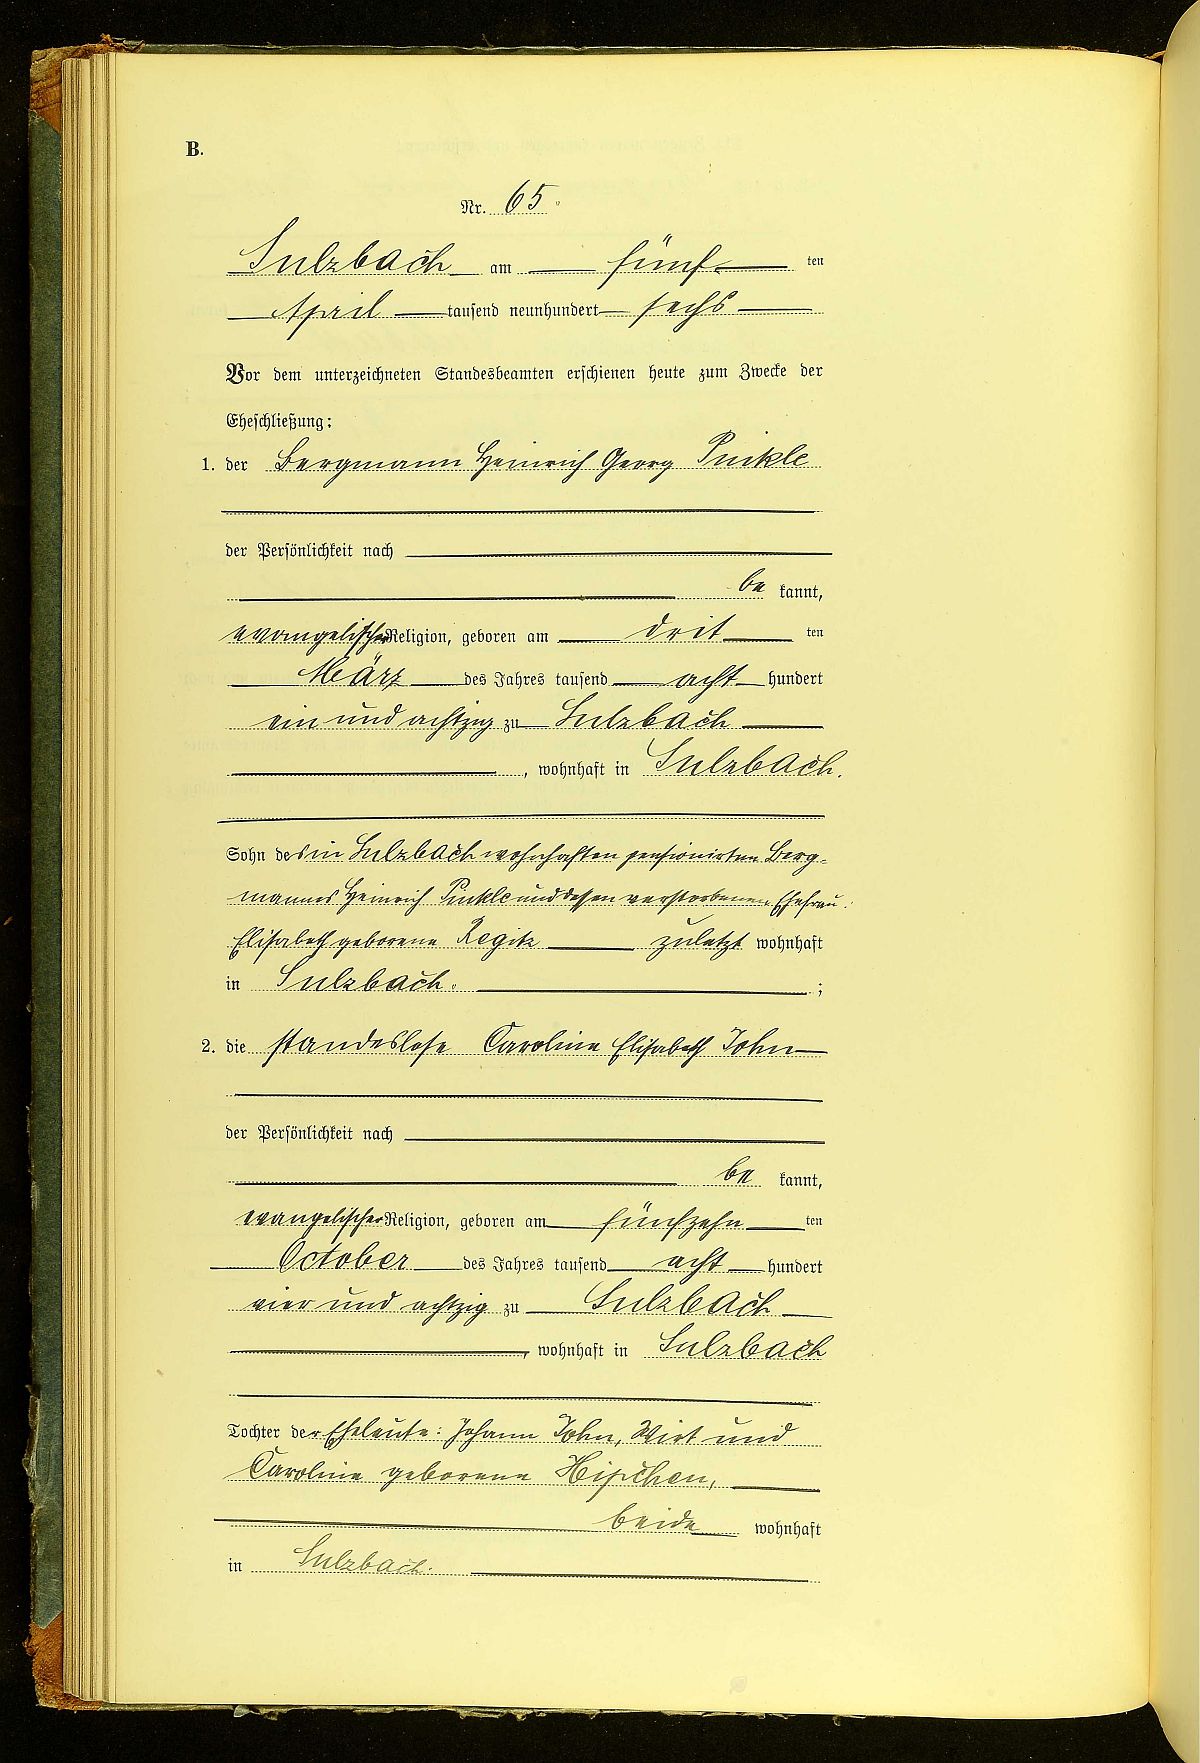 B.
Nr. 65.
Sulzbach am fünf ten
April tausend neunhundert sechs
Vor dem unterzeichneten Standesbeamten erschienen heute zum Zwecke der
Eheschließung:
1. der Bergmann Heinrich Georg Pinkle
der Persönlichkeit nach
be kannt,
evangelischer Religion, geboren am drit ten
März des Jahres tausend acht hundert
ein und achtzig zu Sulzbach
, wohnhaft in Sulzbach.
Sohn des in Sulzbach wohnhaften pensionirten Berg-
mannes Heinrich Pinkle und dessen verstorbenen Ehefrau
Elisabeth geborene Regitz zuletzt wohnhaft
in Sulzbach. ;
2. die standeslose Caroline Elisabeth John
der Persönlichkeit nach
be kannt,
evangelischer Religion, geboren am fünfzehn ten
October des Jahres tausend acht hundert
vier und achtzig zu Sulzbach
, wohnhaft in Sulzbach
Tochter der Eheleute: Johann John, Wirt und
Caroline geborene Hipchen,
beide wohnhaft
in Sulzbach.